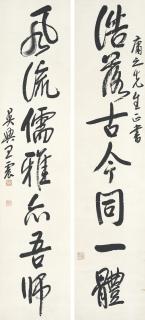 庸之先生正書
浩蕩古今同一體
風流儒雅亦吾師
吳興王震